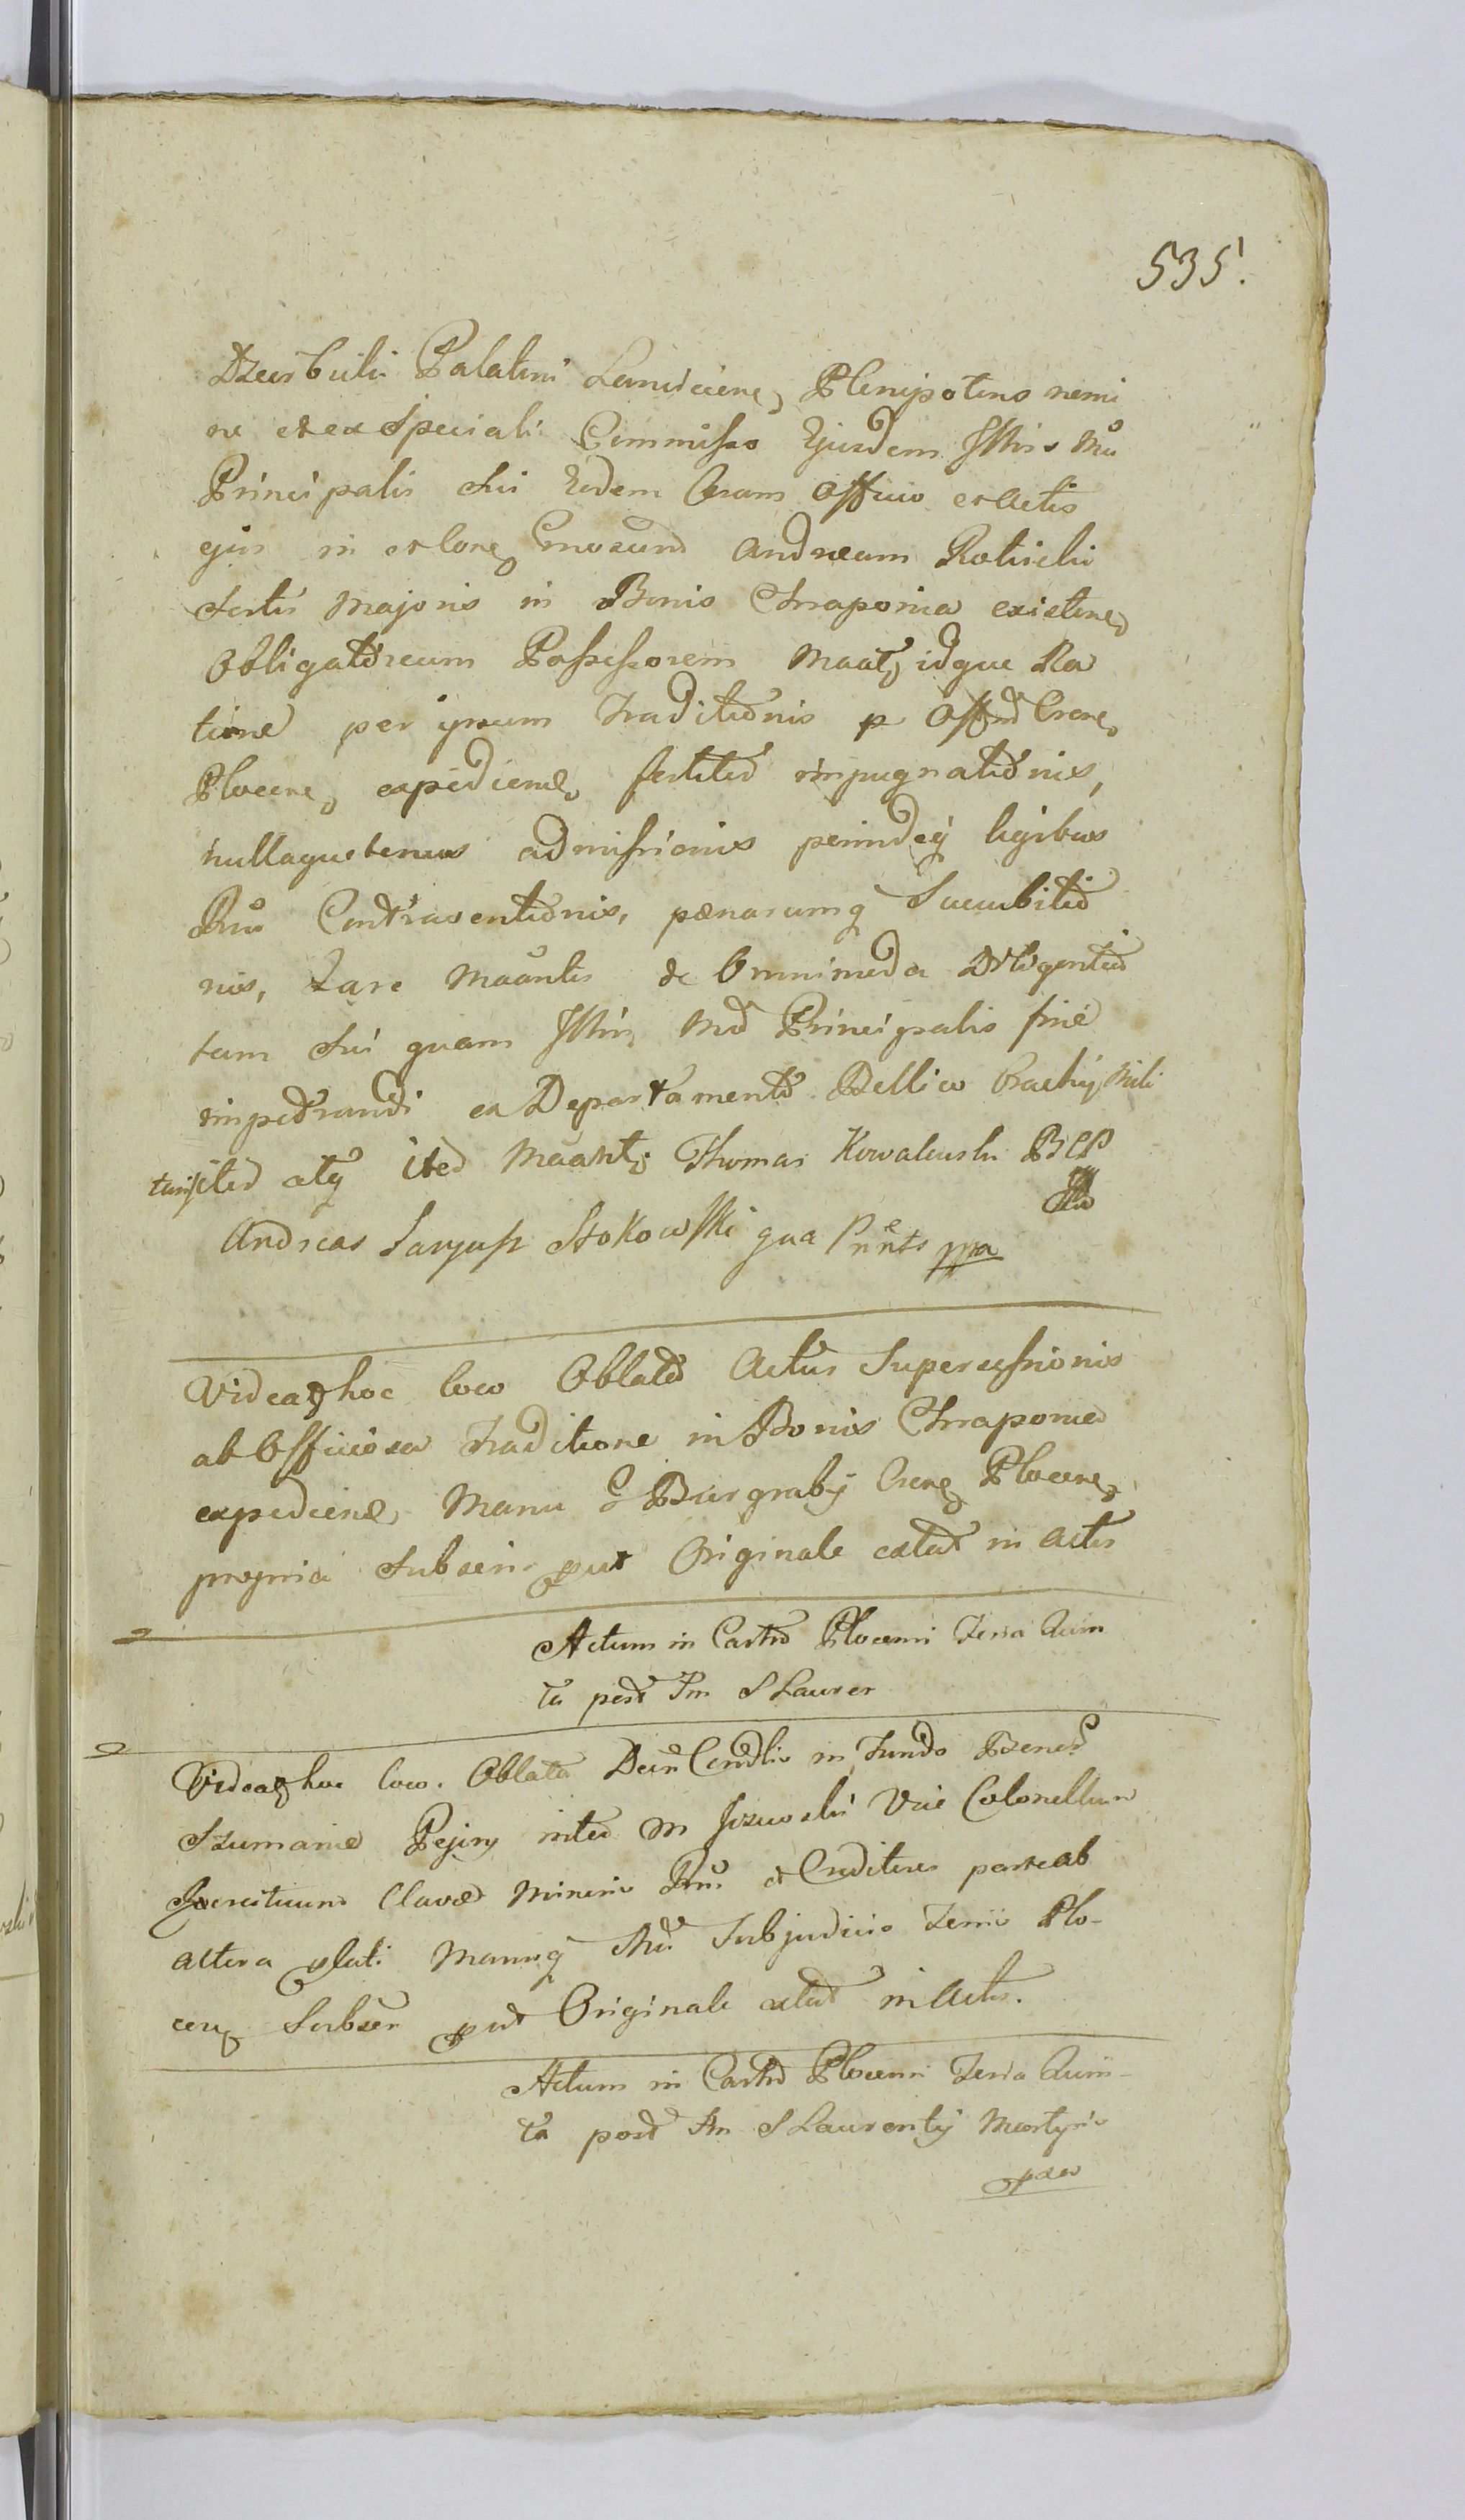 535.
Dzierzbicki Palatini Lancicien Plenipotens nomi
ne et ex Speciali Commisso Ejusdem Illtris Mci
Principalis Sui Eodem Coram Officio et Actis
ejus in et contra Gnosum Andream Rościcki
Sortis Majoris in Bonis Chraponia existen
Obligatorium Possessorem Maat, idque Ra
tione per ipsum Traditionis p Offm Crene
Plocen, expedien, fertita impugnationis,
nullaque tenus admissionis perindeq legibus
Rni Contraventionis, pænarumq Sucubitio
nis, Zare Maantis de Omnimoda Diligentia
tam Sui quam Illtris Mci Principalis fine
impetrandi ex Departamento Bellico Brachij Mili
taris itd atq ited Maant. Thomas Kowalewski BCP
Andreas Saryusz Stokowski qua Pnnts mpa
Videatr hoc loco Oblata Actus Supercessionis
ab Officiosa Traditione in Bonis Chraponia
expedien, Manu G Burgrabij Crene Plocen,
propria Subscri. put Originale extat in Actis
Actum in Castro Plocensi Feria Quin
ta post Fm S Lauren
Videatr hoc loco. Oblata Decr Condlis in Fundo Bonor
Szumanie Pejory inter M Vice Colonellum
Exercituum Clavæ Minoris Rni. et Creditores parte ab
altera lati Manuq Mci Subjudicis Terris Plo-
cen Subscr put Originale extat in Actis.
Actum in Castro Plocensi Feria Quin-
ta post Fm S Laurentij Martyris